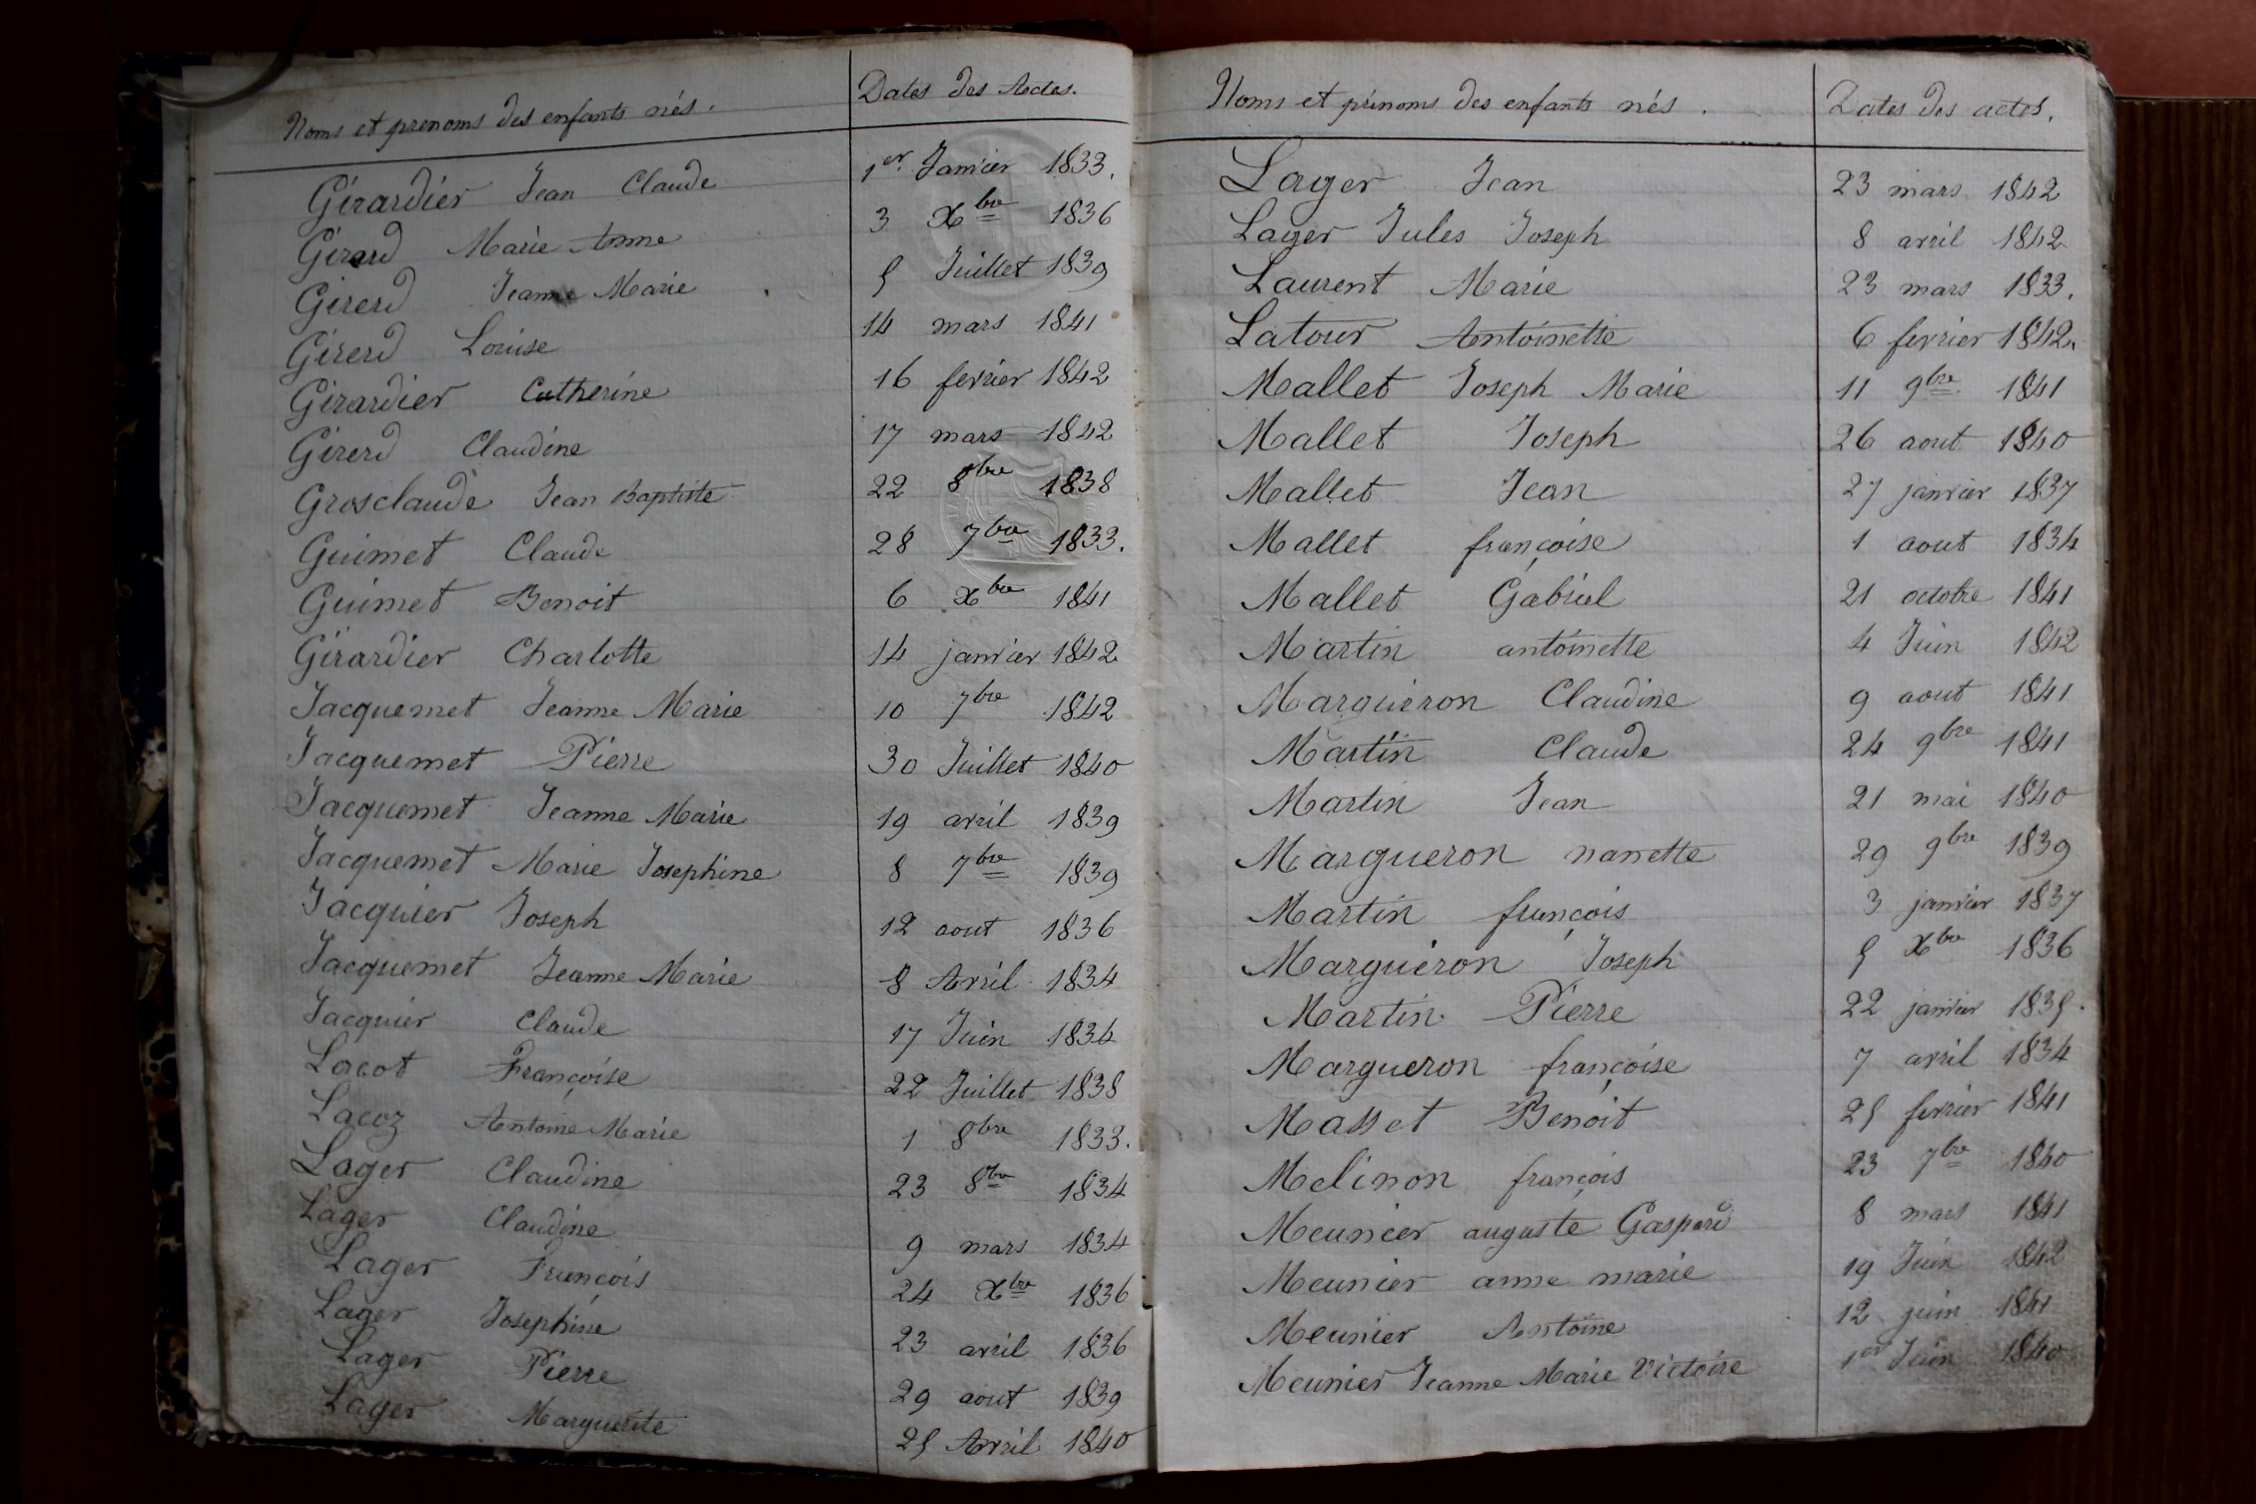 Noms et prenoms des enfants nés. Dates des Actes.
Girardier Jean Claude 1er Janvier 1833.
Girard Marie Anne 3 Xbre 1836
Girerd Jeanne Marie 5 Juillet 1839
Girerd Louise 14 mars 1841
Girardier Catherine 16 fevrier 1842
Girerd Claudine 17 mars 1842
Grosclaude Jean Baptiste 22 8bre 1838
Guimet Claude 28 7bre 1833.
Guimet Benoit 6 Xbre 1841
Girardier Charlotte 14 janvier 1842
Jacquemet Jeanne Marie 10 7bre 1842
Jacquemet Pierre 30 Juillet 1840
Jacquemet Jeanne Marie 19 avril 1839
Jacquemet Marie Josephine 8 7bre 1839
Jacquier Joseph 12 aout 1836
Jacquemet Jeanne Marie 8 Avril 1834
Jacquier Claude 17 Juin 1834
Lacot Françoise 22 Juillet 1838
Lacoz Antoine Marie 1 8bre 1833.
Lager Claudine 23 8bre 1834
Lager Claudine 9 mars 1834
Lager François 24 Xbre 1836
Lager Josephine 23 avril 1836
Lager Pierre 29 aout 1839
Lager Marguerite 25 Avril 1840
Noms et prénoms des enfants nés. Dates des actes.
Lager Jean 23 mars 1842
Lager Jules Joseph 8 avril 1842
Laurent Marie 23 mars 1833.
Latour Antoinette 6 fevrier 1842.
Mallet Joseph Marie 11 9bre 1841
Mallet Joseph 26 aout 1840
Mallet Jean 27 janvier 1837
Mallet françoise 1 aout 1834
Mallet Gabriel 21 octobre 1841
Martin antoinette 4 Juin 1842
Margueron Claudine 9 aout 1841
Martin Claude 24 9bre 1841
Martin Jean 21 mai 1840
Margueron nanette 29 9bre 1839
Martin françois 3 janvier 1837
Margueron Joseph 5 Xbre 1836
Martin Pierre 22 janvier 1835.
Margueron françoise 7 avril 1834
Masset Benoit 25 fevrier 1841
Melinon françois 23 7bre 1840
Meunier auguste Gaspard 8 mars 1841
Meunier anne marie 19 Juin 1842
Meunier Antoine 12 juin 1841
Meunier Jeanne Marie Victoire 1er Juin 1840